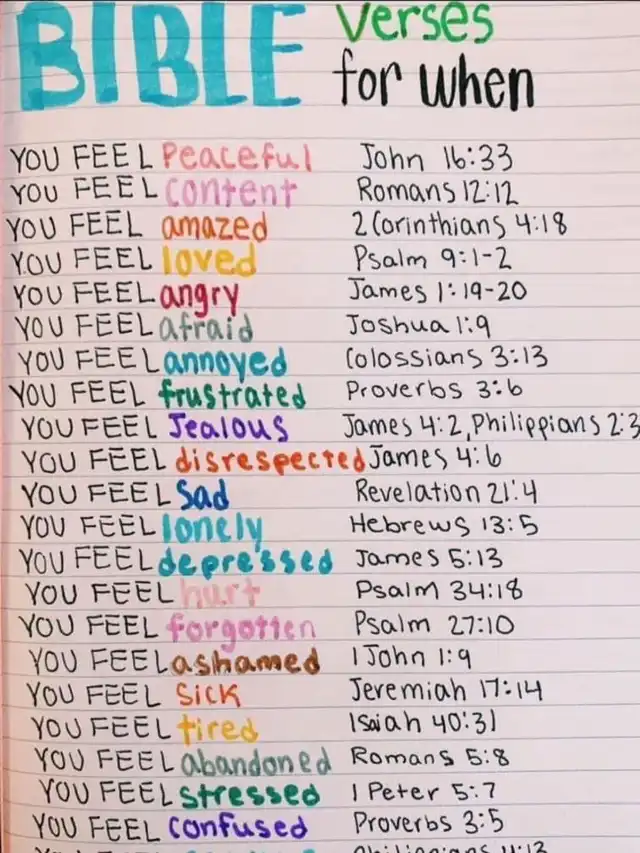 BIBLE verses
for when
YOU FEEL Peaceful John 16:33
YOU FEEL content Romans 12:12
YOU FEEL amazed 2 Corinthians 4:18
YOU FEEL loved Psalm 9:1-2
YOU FEEL angry James 1:19-20
YOU FEEL afraid Joshua 1:9
YOU FEEL annoyed Colossians 3:13
YOU FEEL frustrated Proverbs 3:6
YOU FEEL Jealous James 4:2, Philippians 2:3
YOU FEEL disrespected James 4:6
YOU FEEL Sad Revelation 21:4
YOU FEEL lonely Hebrews 13:5
YOU FEEL depressed James 5:13
YOU FEEL hurt Psalm 34:18
YOU FEEL forgotten Psalm 27:10
YOU FEEL ashamed 1 John 1:9
YOU FEEL Sick Jeremiah 17:14
YOU FEEL tired Isaiah 40:31
YOU FEEL abandoned Romans 5:8
YOU FEEL stressed 1 Peter 5:7
YOU FEEL confused Proverbs 3:5